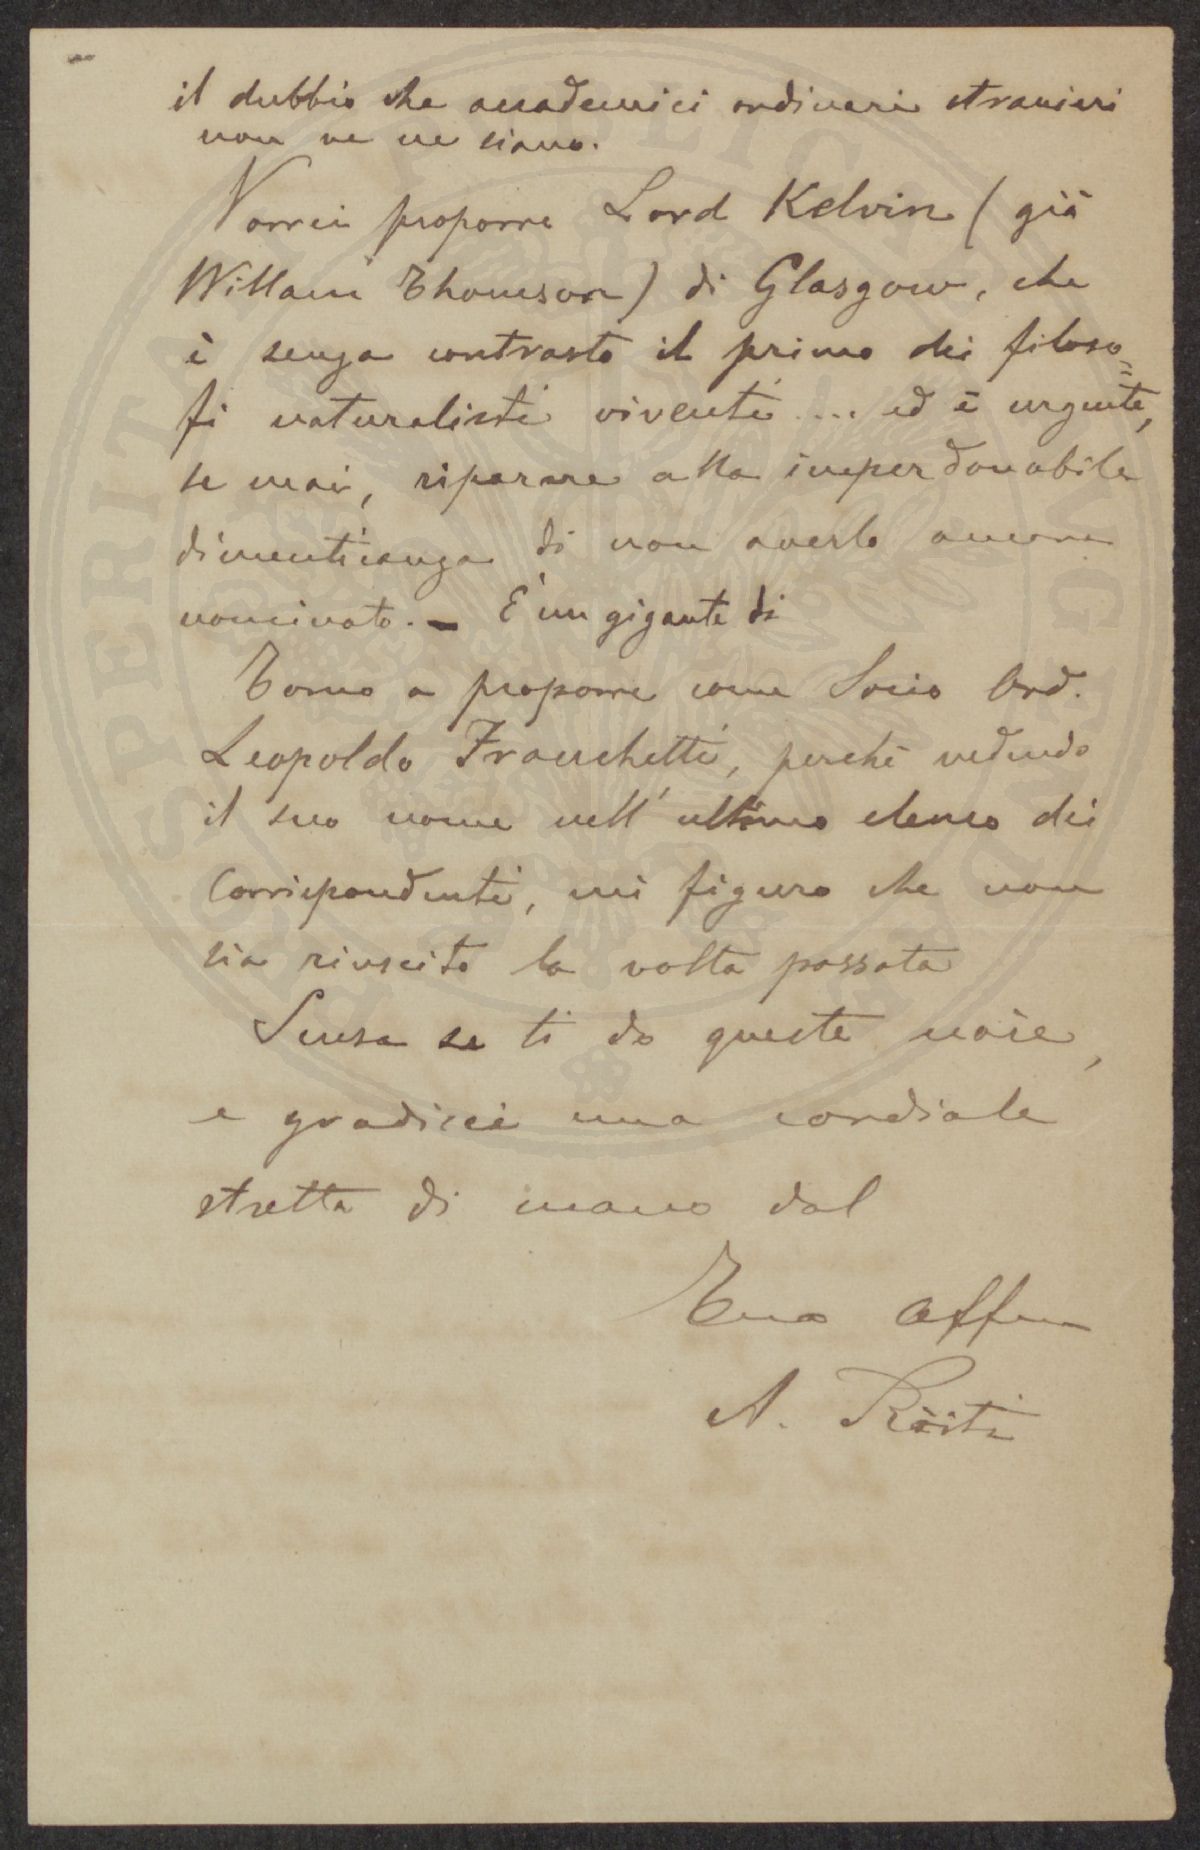 il dubbio che accademici ordinari stranieri
non ve ne siano.
Vorrei proporre Lord Kelvin (già
William Thomson) di Glasgow, che
è senza contrasto il primo dei filoso=
fi naturalisti viventi ... ed è urgente,
se mai, riparare alla imperdonabile
dimenticanza di non averlo ancora
nominato. — È un gigante di
Torno a proporre come Socio Ord.
Leopoldo Franchetti, perchè vedendo
il suo nome nell'ultimo elenco dei
Corrispondenti, mi figuro che non
sia riuscito la volta passata
Scusa se ti do queste noie,
e gradisci una cordiale
stretta di mano dal
Tuo affmo
A. Ròiti